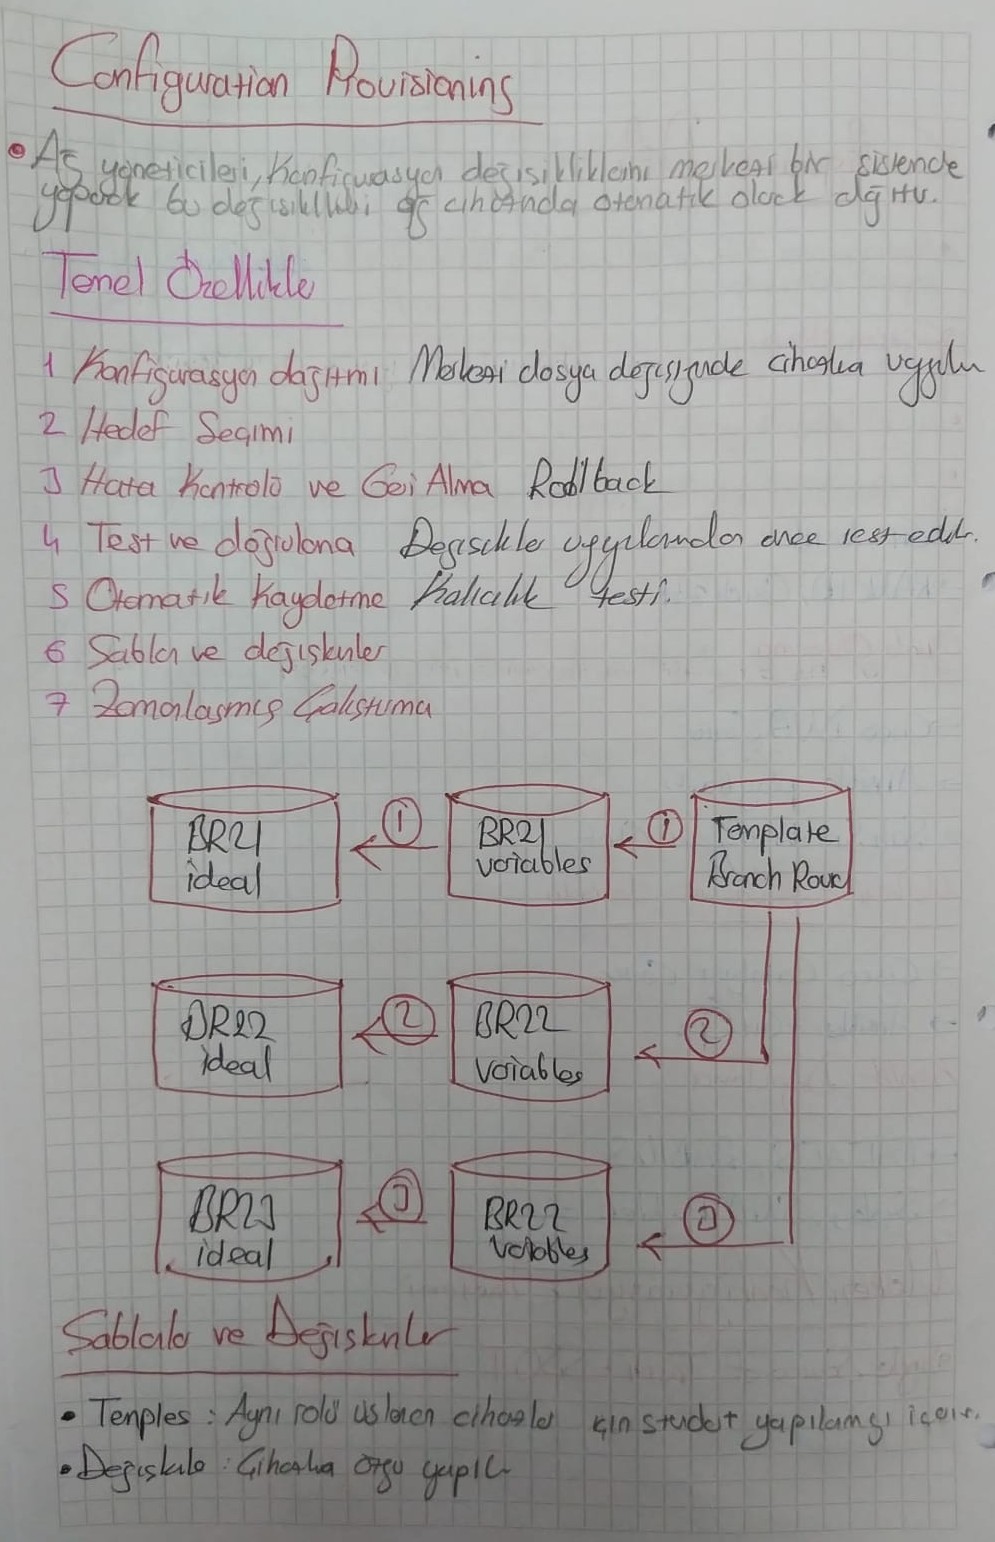 Configuration Provisioning
• Ağ yöneticileri, Konfigurasyon değişikliklerini merkezi bir sistemde
yaparak bu değişiklikleri ağ cihazında otomatik olarak dağıtır.
Temel Özellikle
1 Konfigürasyon dağıtımı Merkezi dosya değiştiğinde cihazlara uygula
2 Hedef Seçimi
3 Hata Kontrolü ve Geri Alma Rollback
4 Test ve doğrulama Değişikler uygulamadan önce test edilir.
5 Otomatik Kaydetme Kalıcılık testi.
6 Şablon ve değişkenler
7 Zamanlaşmış Çalıştırma
BR21 ideal
1
BR21 variables
1
Template Branch Rout
BR22 ideal
2
BR22 variables
2
BR23 ideal
3
BR22 variables
3
Şablonla ve Değişkenler
• Temples : Aynı rolü üslenen cihazlar için standart yapılamayı içerir.
• Değişkenle : Cihazlara özgü yapıl